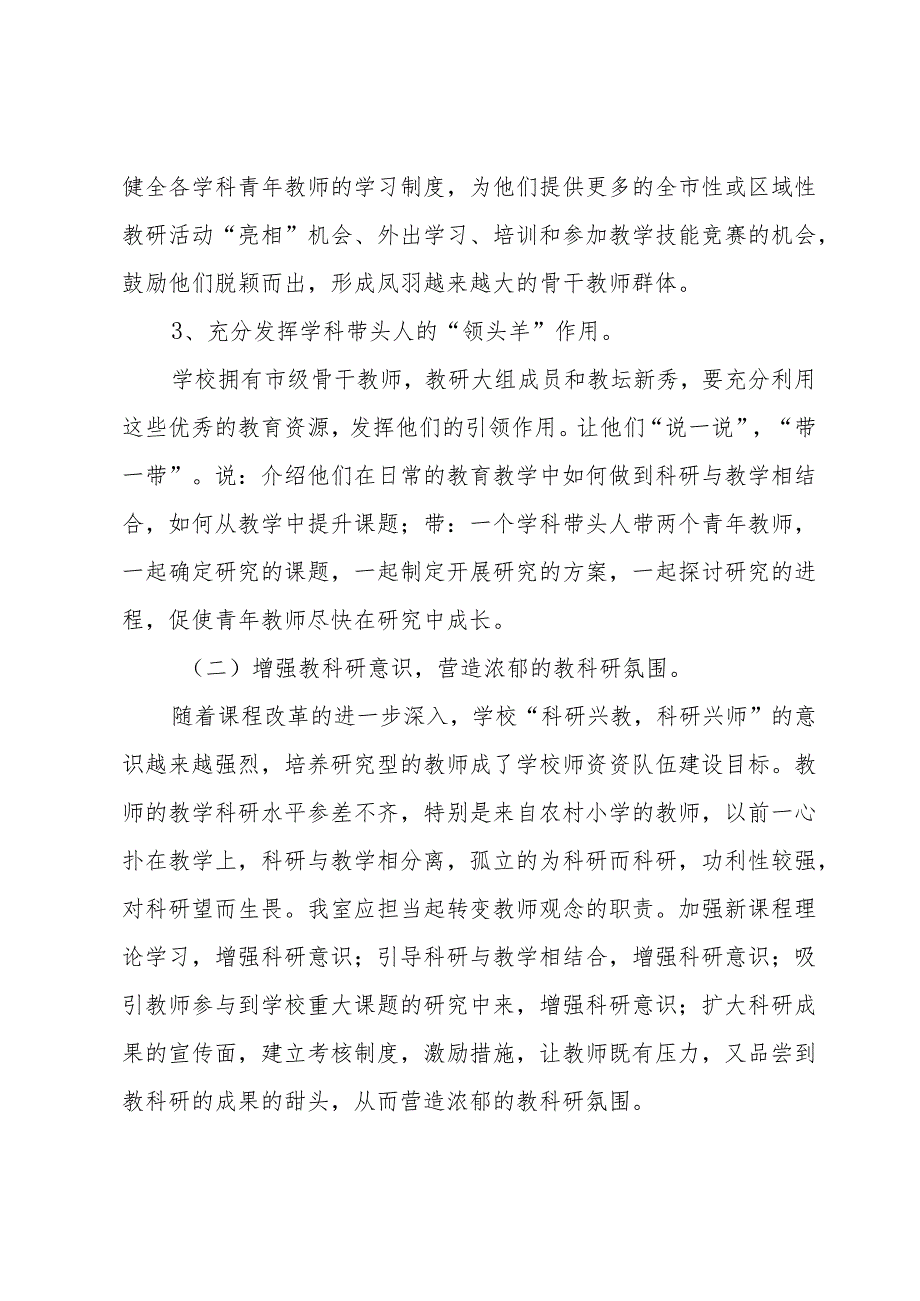 健全各学科青年教师的学习制度，为他们提供更多的全市性或区域性
教研活动“亮相”机会、外出学习、培训和参加教学技能竞赛的机会，
鼓励他们脱颖而出，形成凤羽越来越大的骨干教师群体。
3、充分发挥学科带头人的“领头羊”作用。
学校拥有市级骨干教师，教研大组成员和教坛新秀，要充分利用
这些优秀的教育资源，发挥他们的引领作用。让他们“说一说”，“带
一带”。说：介绍他们在日常的教育教学中如何做到科研与教学相结
合，如何从教学中提升课题；带：一个学科带头人带两个青年教师，
一起确定研究的课题，一起制定开展研究的方案，一起探讨研究的进
程，促使青年教师尽快在研究中成长。
（二）增强教科研意识，营造浓郁的教科研氛围。
随着课程改革的进一步深入，学校“科研兴教，科研兴师”的意
识越来越强烈，培养研究型的教师成了学校师资资队伍建设目标。教
师的教学科研水平参差不齐，特别是来自农村小学的教师，以前一心
扑在教学上，科研与教学相分离，孤立的为科研而科研，功利性较强，
对科研望而生畏。我室应担当起转变教师观念的职责。加强新课程理
论学习，增强科研意识；引导科研与教学相结合，增强科研意识；吸
引教师参与到学校重大课题的研究中来，增强科研意识；扩大科研成
果的宣传面，建立考核制度，激励措施，让教师既有压力，又品尝到
教科研的成果的甜头，从而营造浓郁的教科研氛围。